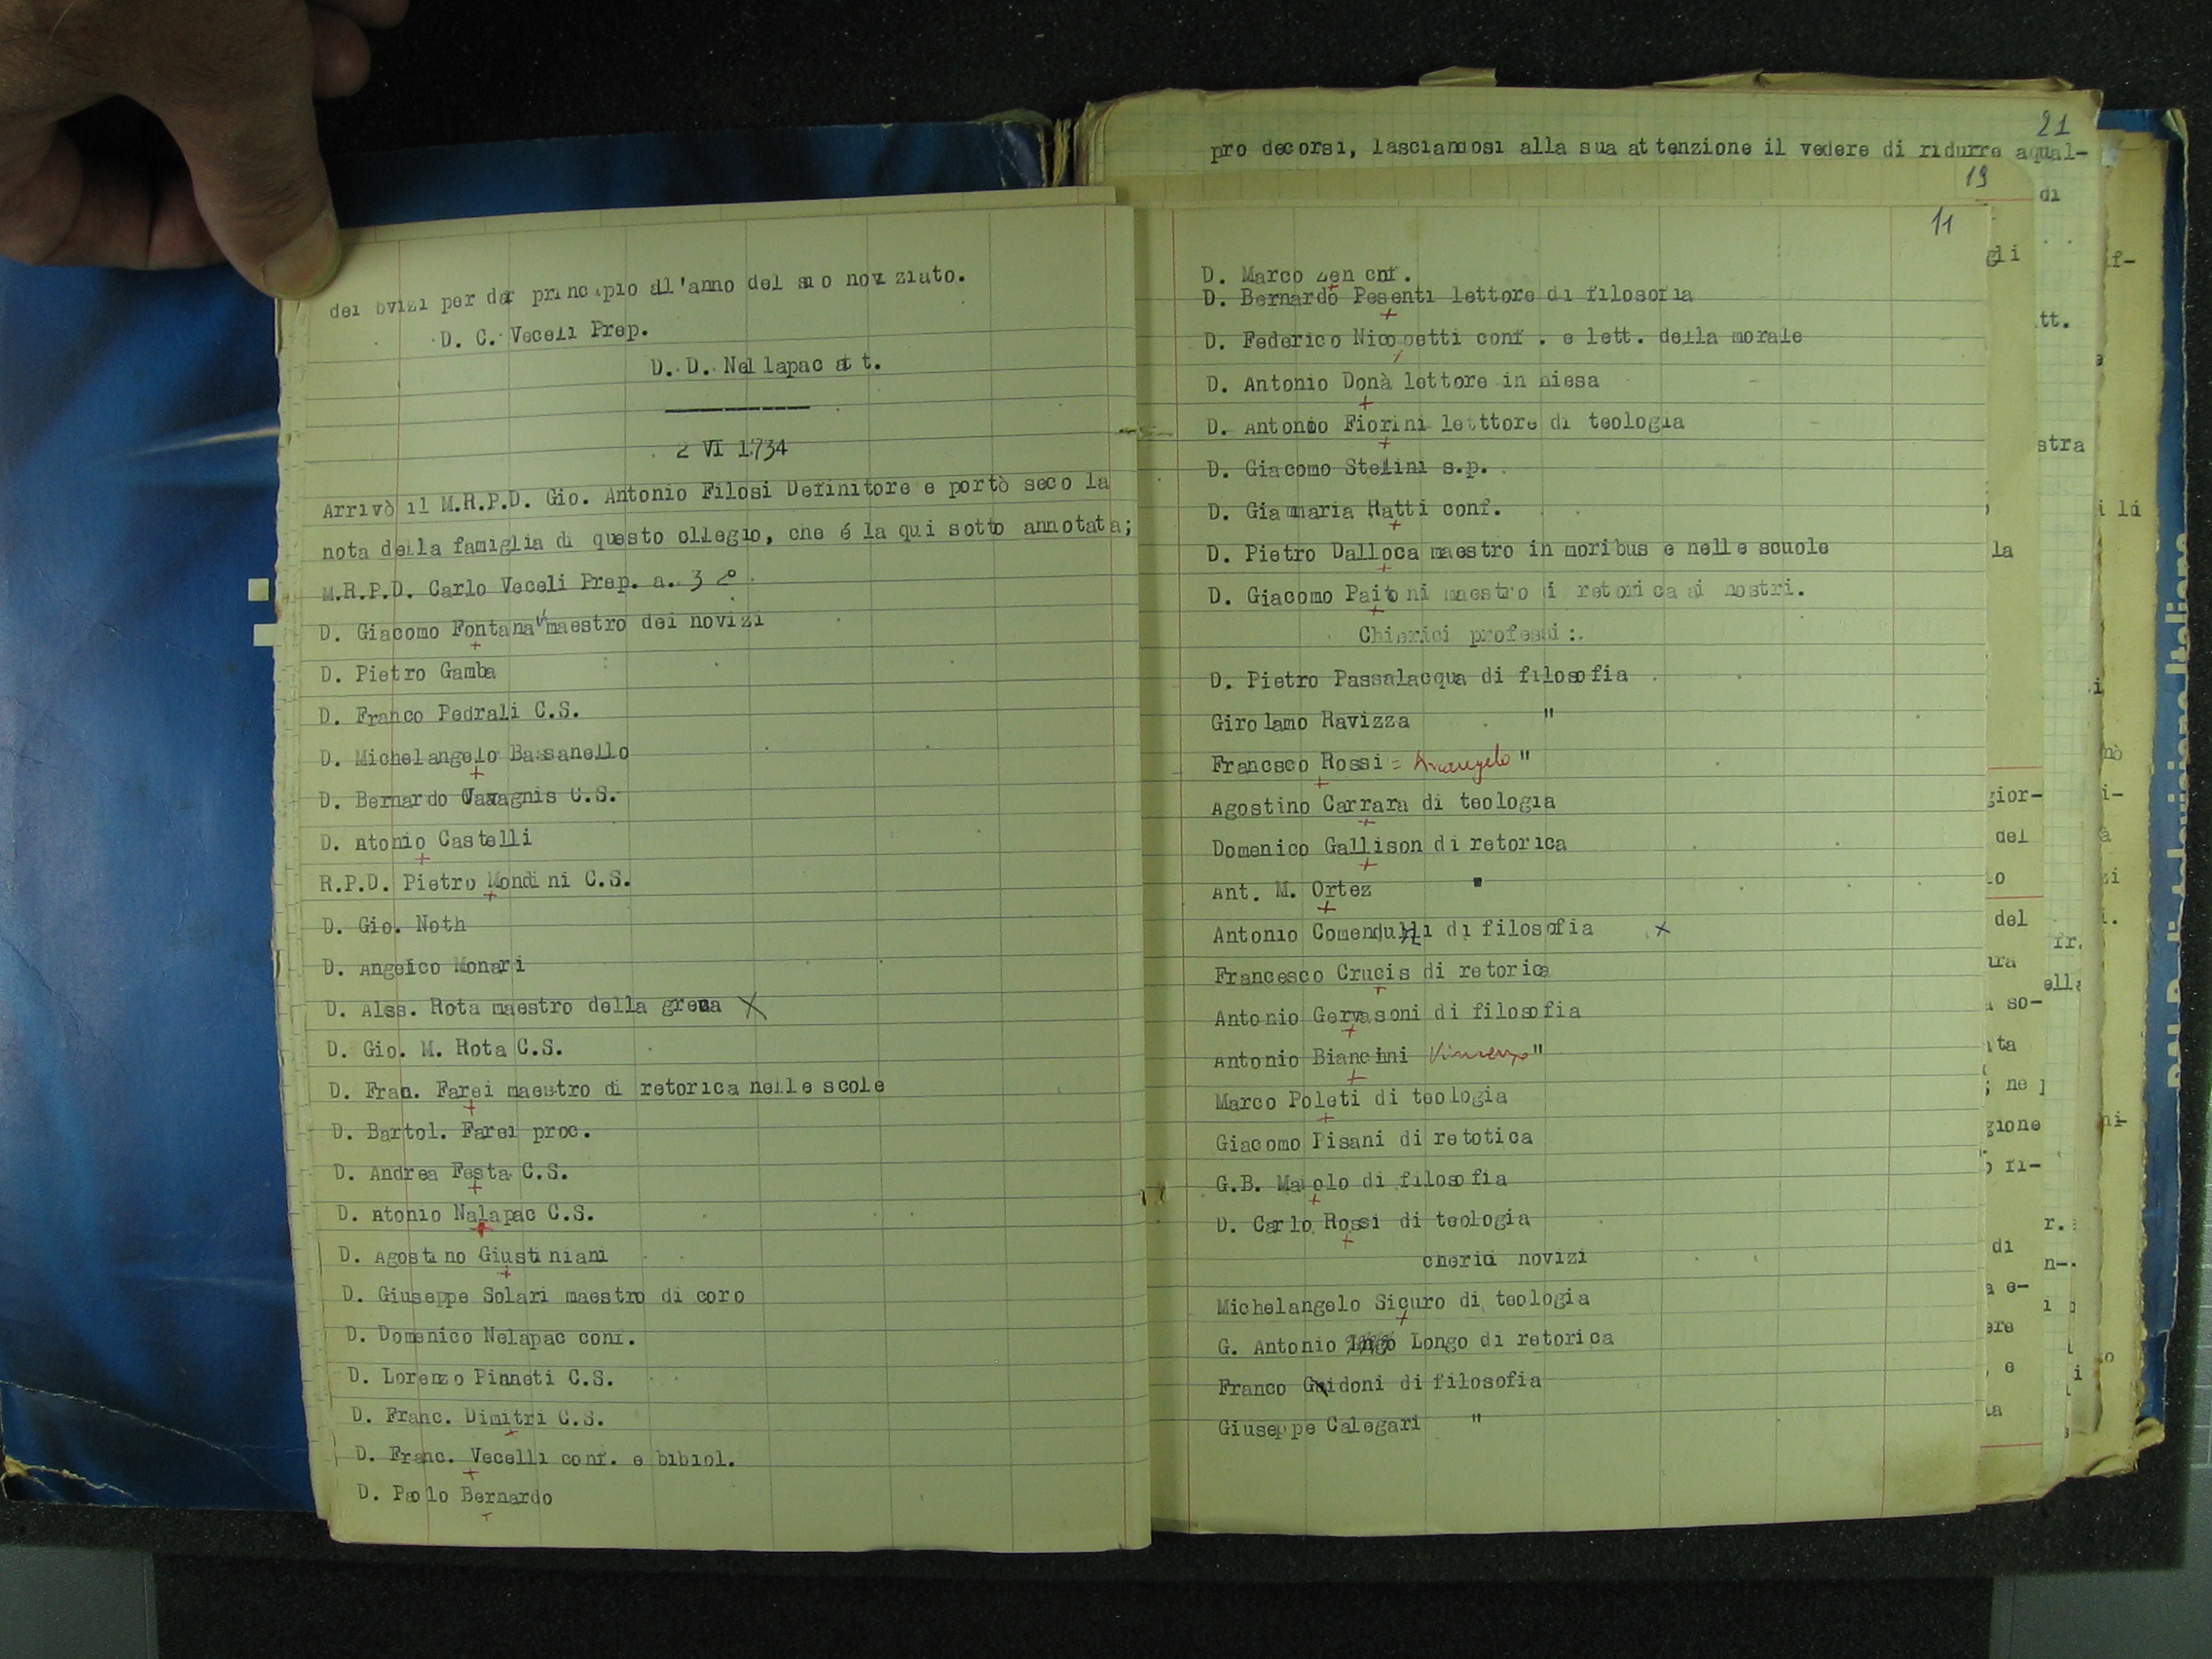 dei ovizi per dar principio all'anno del suo noviziato.
D. C. Veceli Prep.
D. D. Nellapac att.
2 VI 1734
Arrivò il M.R.P.D. Gio. Antonio Filosi Definitore e portò seco la
nota della famiglia di questo ollegio, che é la qui sotto annotata;
M.R.P.D. Carlo Veceli Prep. a. 3 2°
D. Giacomo Fontana maestro dei novizi
D. Pietro Gamba
D. Franco Pedrali C.S.
D. Michelangelo Bassanello
D. Bernardo Vavagnis C.S.
D. ntonio Castelli
R.P.D. Pietro Mondini C.S.
D. Gio. Noth
D. Angelico Monari
D. Alss. Rota maestro della greca X
D. Gio. M. Rota C.S.
D. Fran. Farei maestro di retorica nelle scole
D. Bartol. Farei proc.
D. Andrea Festa C.S.
D. ntonio Nalapac C.S.
D. Agostino Giustiniani
D. Giuseppe Solari maestro di coro
D. Domenico Nelapac conf.
D. Lorenzo Pinneti C.S.
D. Franc. Dimitri C.S.
D. Franc. Vecelli conf. e bibiol.
D. Paolo Bernardo
21
pro decorsi, lasciandosi alla sua attenzione il vedere di ridurre aqual-
19
11
D. Marco Zen cnf.
D. Bernardo Pesenti lettore di filosofia
D. Federico Nicopetti conf. e lett. della morale
D. Antonio Donà lettore in hiesa
D. Antonio Fiorini letttore di teologia
D. Giacomo Stelini s.p.
D. Giammaria Hatti conf.
D. Pietro Dalloca maestro in moribus e nelle scuole
D. Giacomo Paitoni maestro di retorica ai nostri.
Chierici professi:.
D. Pietro Passalacqua di filosofia
Girolamo Ravizza "
Francsco Rossi = Arcangelo "
Agostino Carrara di teologia
Domenico Gallison di retorica
Ant. M. Ortez "
Antonio Comendulli di filosofia x
Francesco Crucis di retorica
Antonio Gervasoni di filosofia
Antonio Bianchini Vincenzo "
Marco Poleti di teologia
Giacomo Pisani di retotica
G.B. Maiolo di filosofia
D. Carlo Rossi di teologia
cherici novizi
Michelangelo Sicuro di teologia
G. Antonio Longo di retorica
Franco Guidoni di filosofia
Giuseppe Calegari "